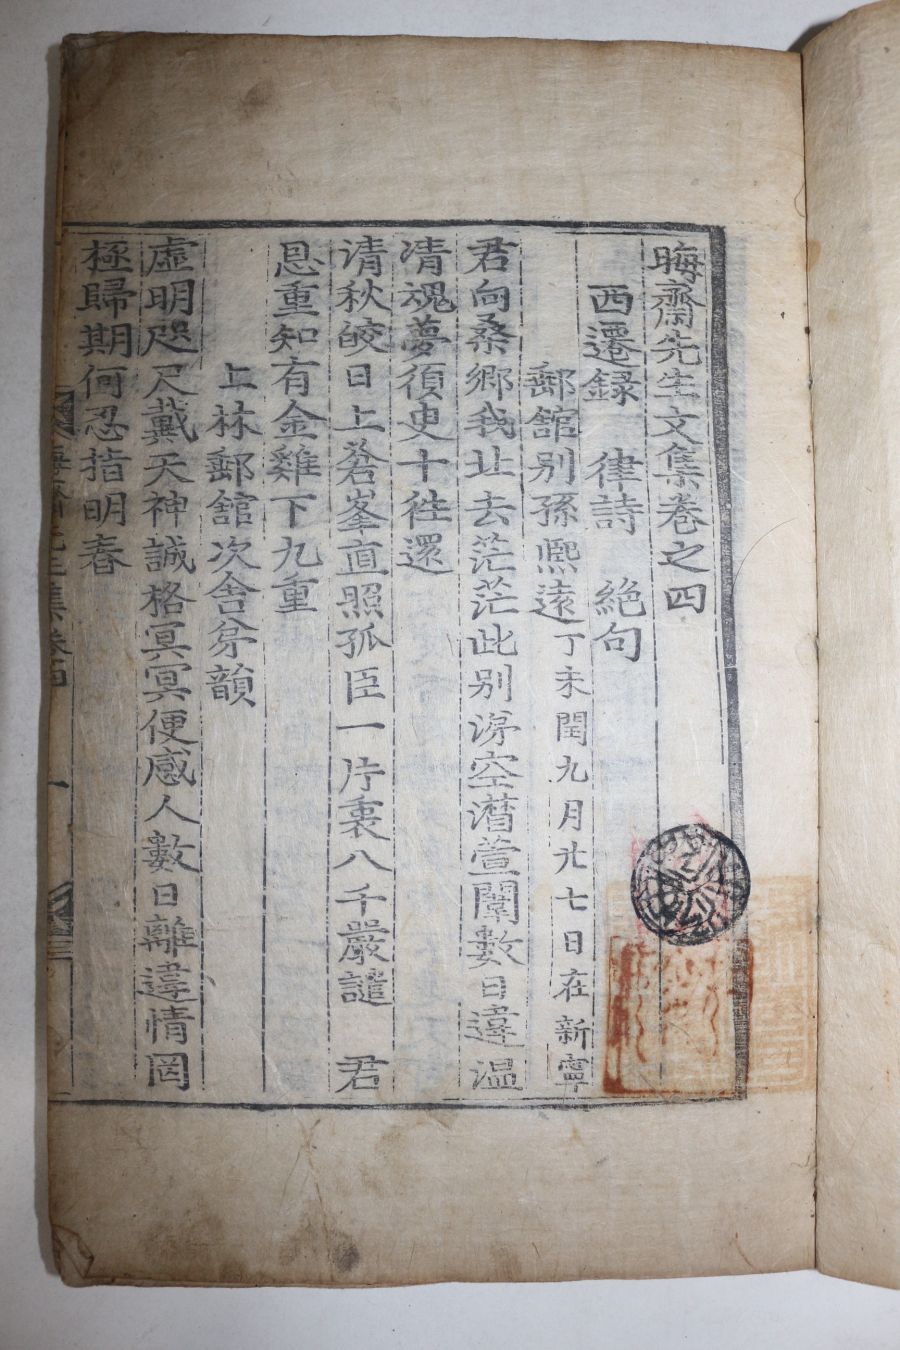 晦齋先生文集卷之四
西遷錄 律詩 絶句
郵舘別孫熈遠丁未閏九月卄七日在新寧
君向桑郷我北去茫茫此別涕空潸萱闈數日違温
凊魂夢須臾十徃還
清秋皎日上蒼峯直照孤臣一片衷八千嚴譴 君
恩重知有金雞下九重
上林郵舘次舍弟韻
虛明咫尺戴天神誠格冥冥便感人數日離違情罔
極歸期何忍指明春